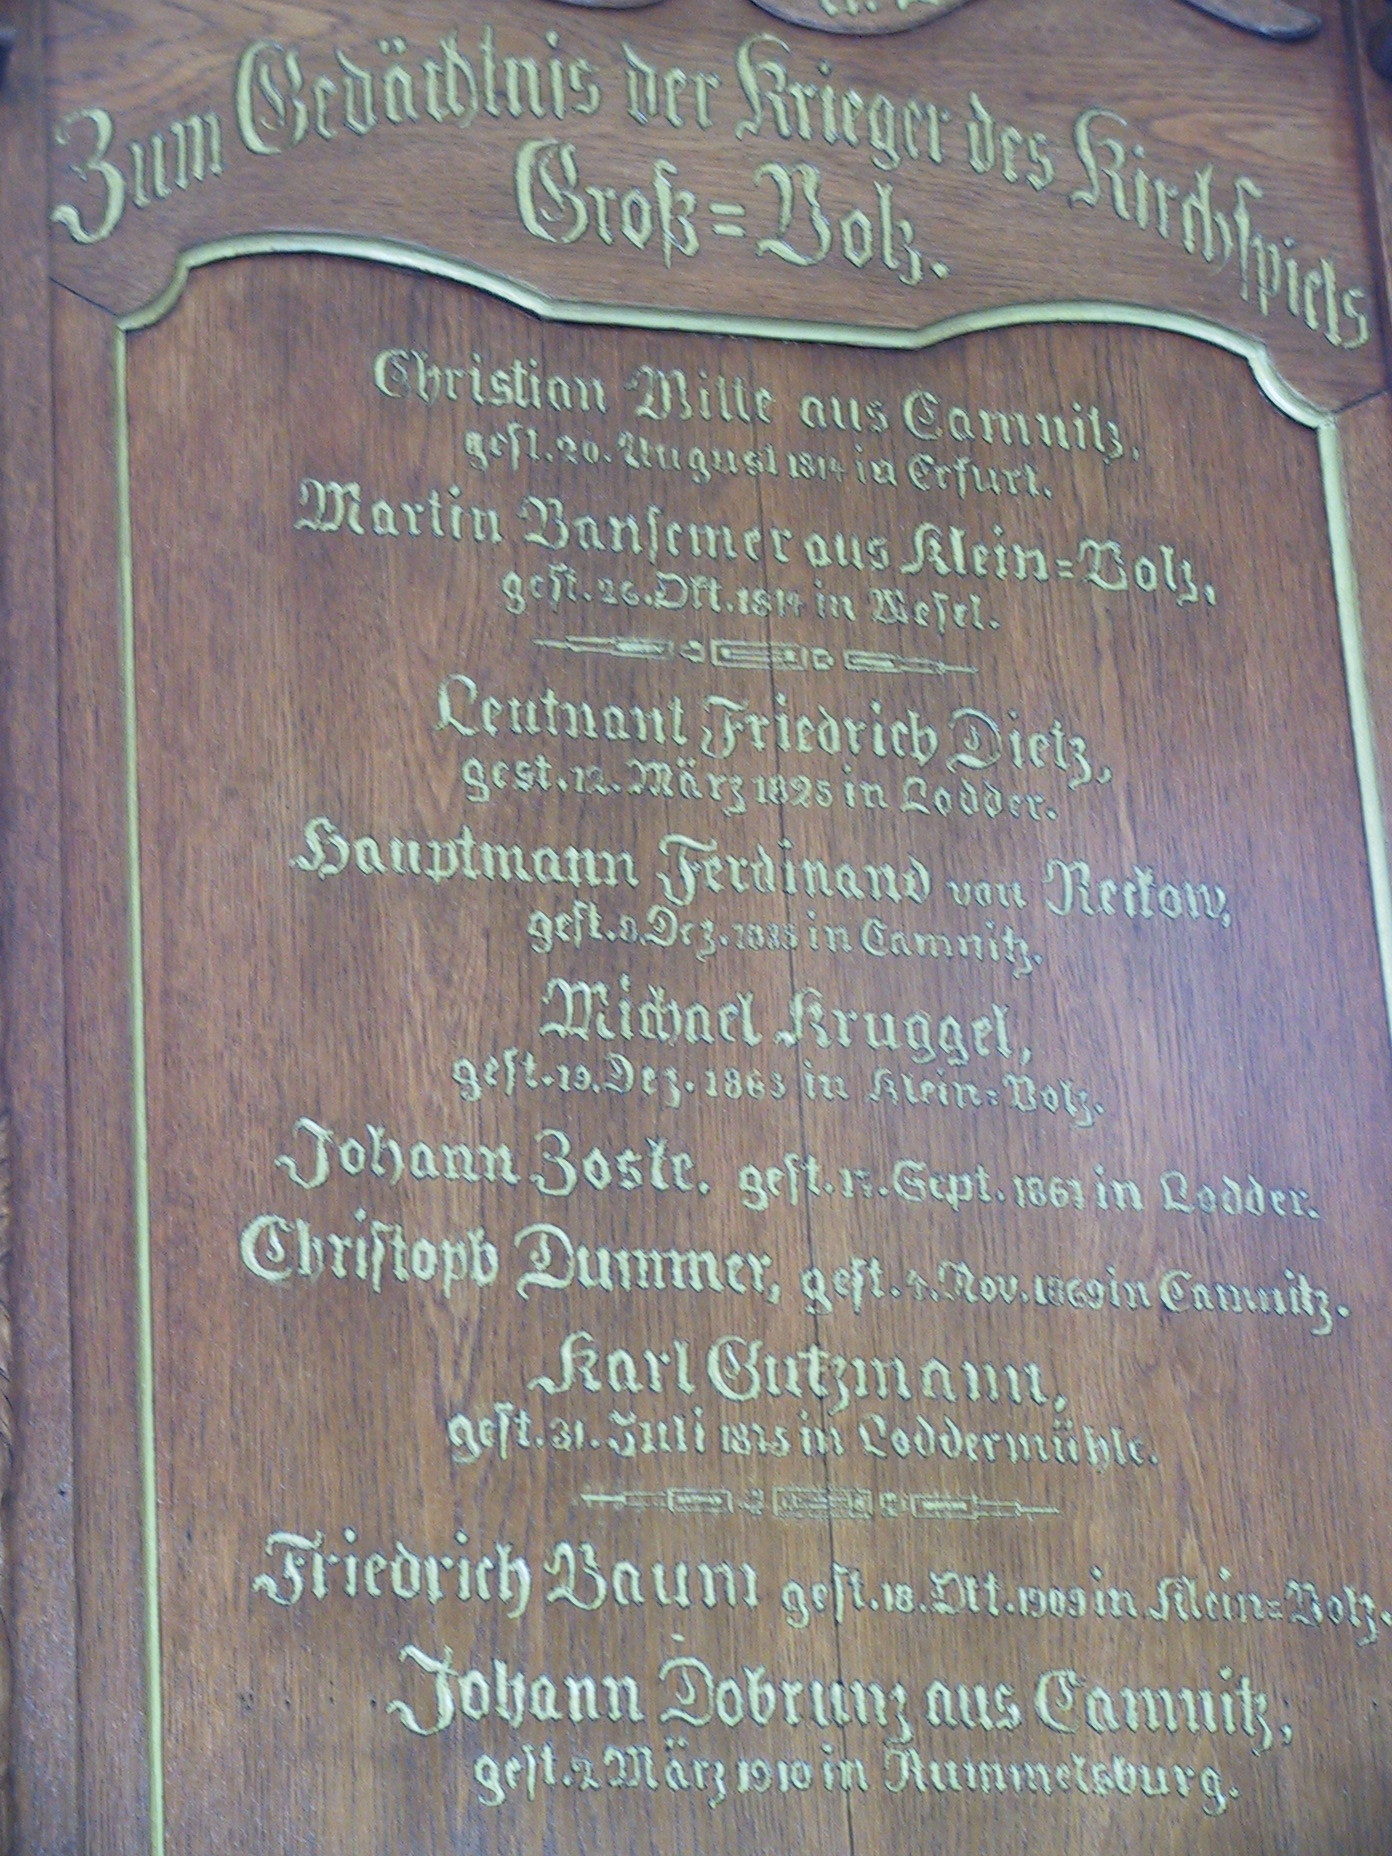 Zum Gedächtnis der Krieger des Kirchspiels
Groß=Volz.
Christian Witte aus Camnitz,
gest. 20. August 1814 in Erfurt.
Martin Bansemer aus Klein=Volz,
gest. 26. Okt. 1814 in Wesel.
Leutnant Friedrich Dietz,
gest. 12. März 1825 in Lodder.
Hauptmann Ferdinand von Reckow,
gest. Dez. in Camnitz.
Michael Kruggel,
gest. 19. Dez. 1863 in Klein=Volz.
Johann Zoske, gest. Sept. in Lodder.
Christoph Dummer, gest. 4. Nov. 1869 in Camnitz.
Karl Gutzmann,
gest. 31. Juli 1875 in Loddermühle.
Friedrich Baum gest. 18. Okt. 1909 in Klein=Volz.
Johann Dobrunz aus Camnitz,
gest. 2 März 1910 in Rummelsburg.